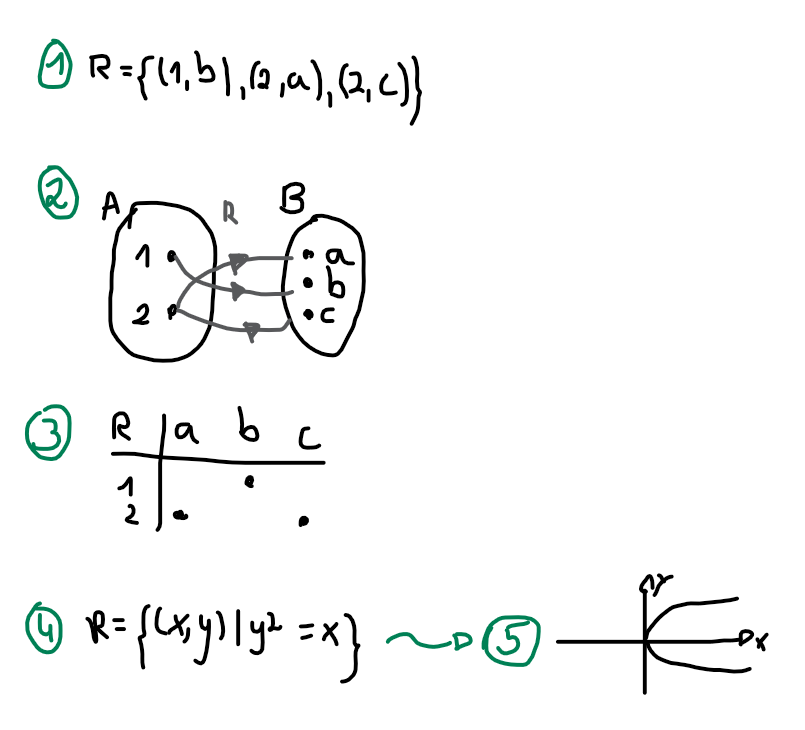 1 R={(1,b),(2,a),(2,c)}
2 A R B
1 a
b
2 c
3 R a b c
1
2
4 R={(x,y)|y²=x} 5
y
x